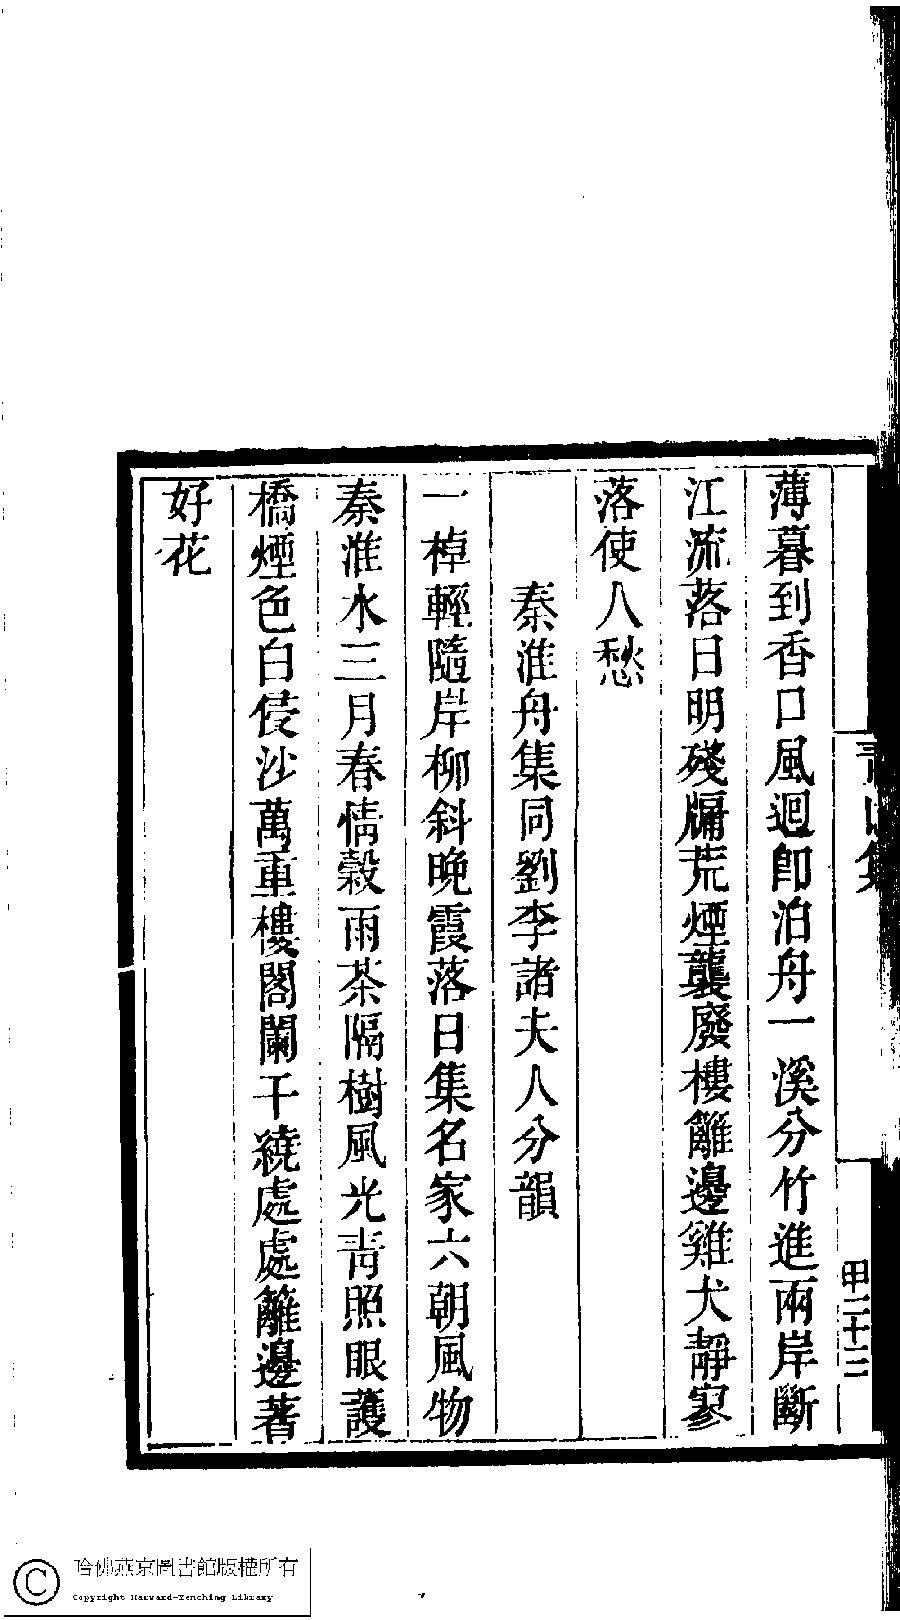 薄暮到香口風迴卽泊舟一溪分竹進兩岸斷
江流落日明殘牖荒煙襲廢樓籬邊雞犬靜寥
落使人愁
秦淮舟集同劉李諸夫人分韻
一棹輕隨岸柳斜晚霞落日集名家六朝風物
秦淮水三月春情穀雨茶隔樹風光青照眼護
橋煙色白侵沙萬重樓閣闌干繞處處籬邊著
好花
甲二十三
哈佛燕京圖書館版權所有
Copyright Harvard-Yenching Library